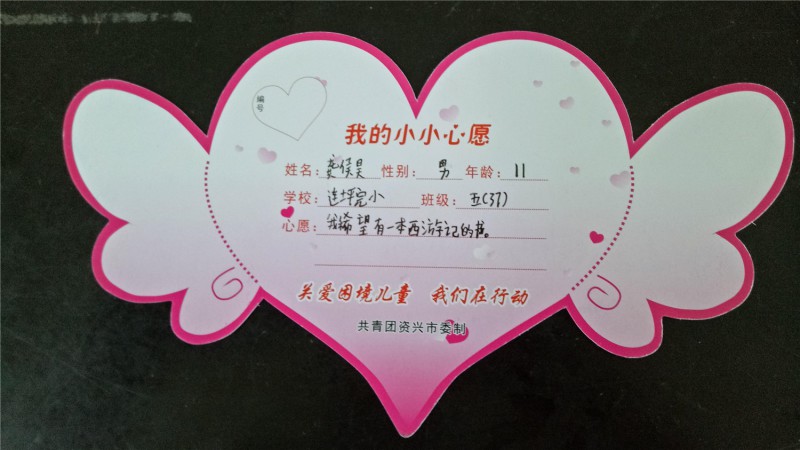 编号
我的小小心愿
姓名: 侯昊 性别: 男 年龄: 11
学校: 连坪完小 班级: 五(37)
心愿: 我希望有一本西游记的书。
关爱困境儿童 我们在行动
共青团资兴市委制